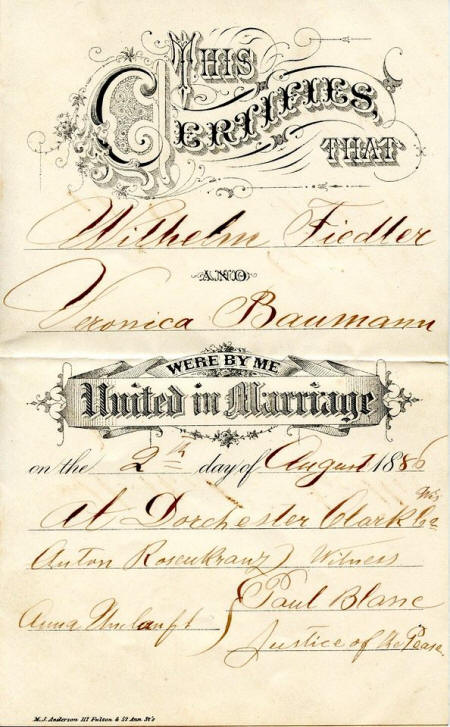 THIS
CERTIFIES,
THAT
Wilhelm Fiedler
AND
Veronica Baumann
WERE BY ME
United in Marriage
on the 2th day of August 1886
At Dorchester Clark Co Wis
Anton Rosenkranz } Witness
Anna Umlauft
Paul Blanc
Justice of the Pease
M. J. Anderson 117 Fulton & 51 Ann St's